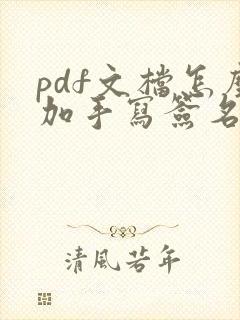 pdf文檔怎麼
加手寫簽名
清風若年